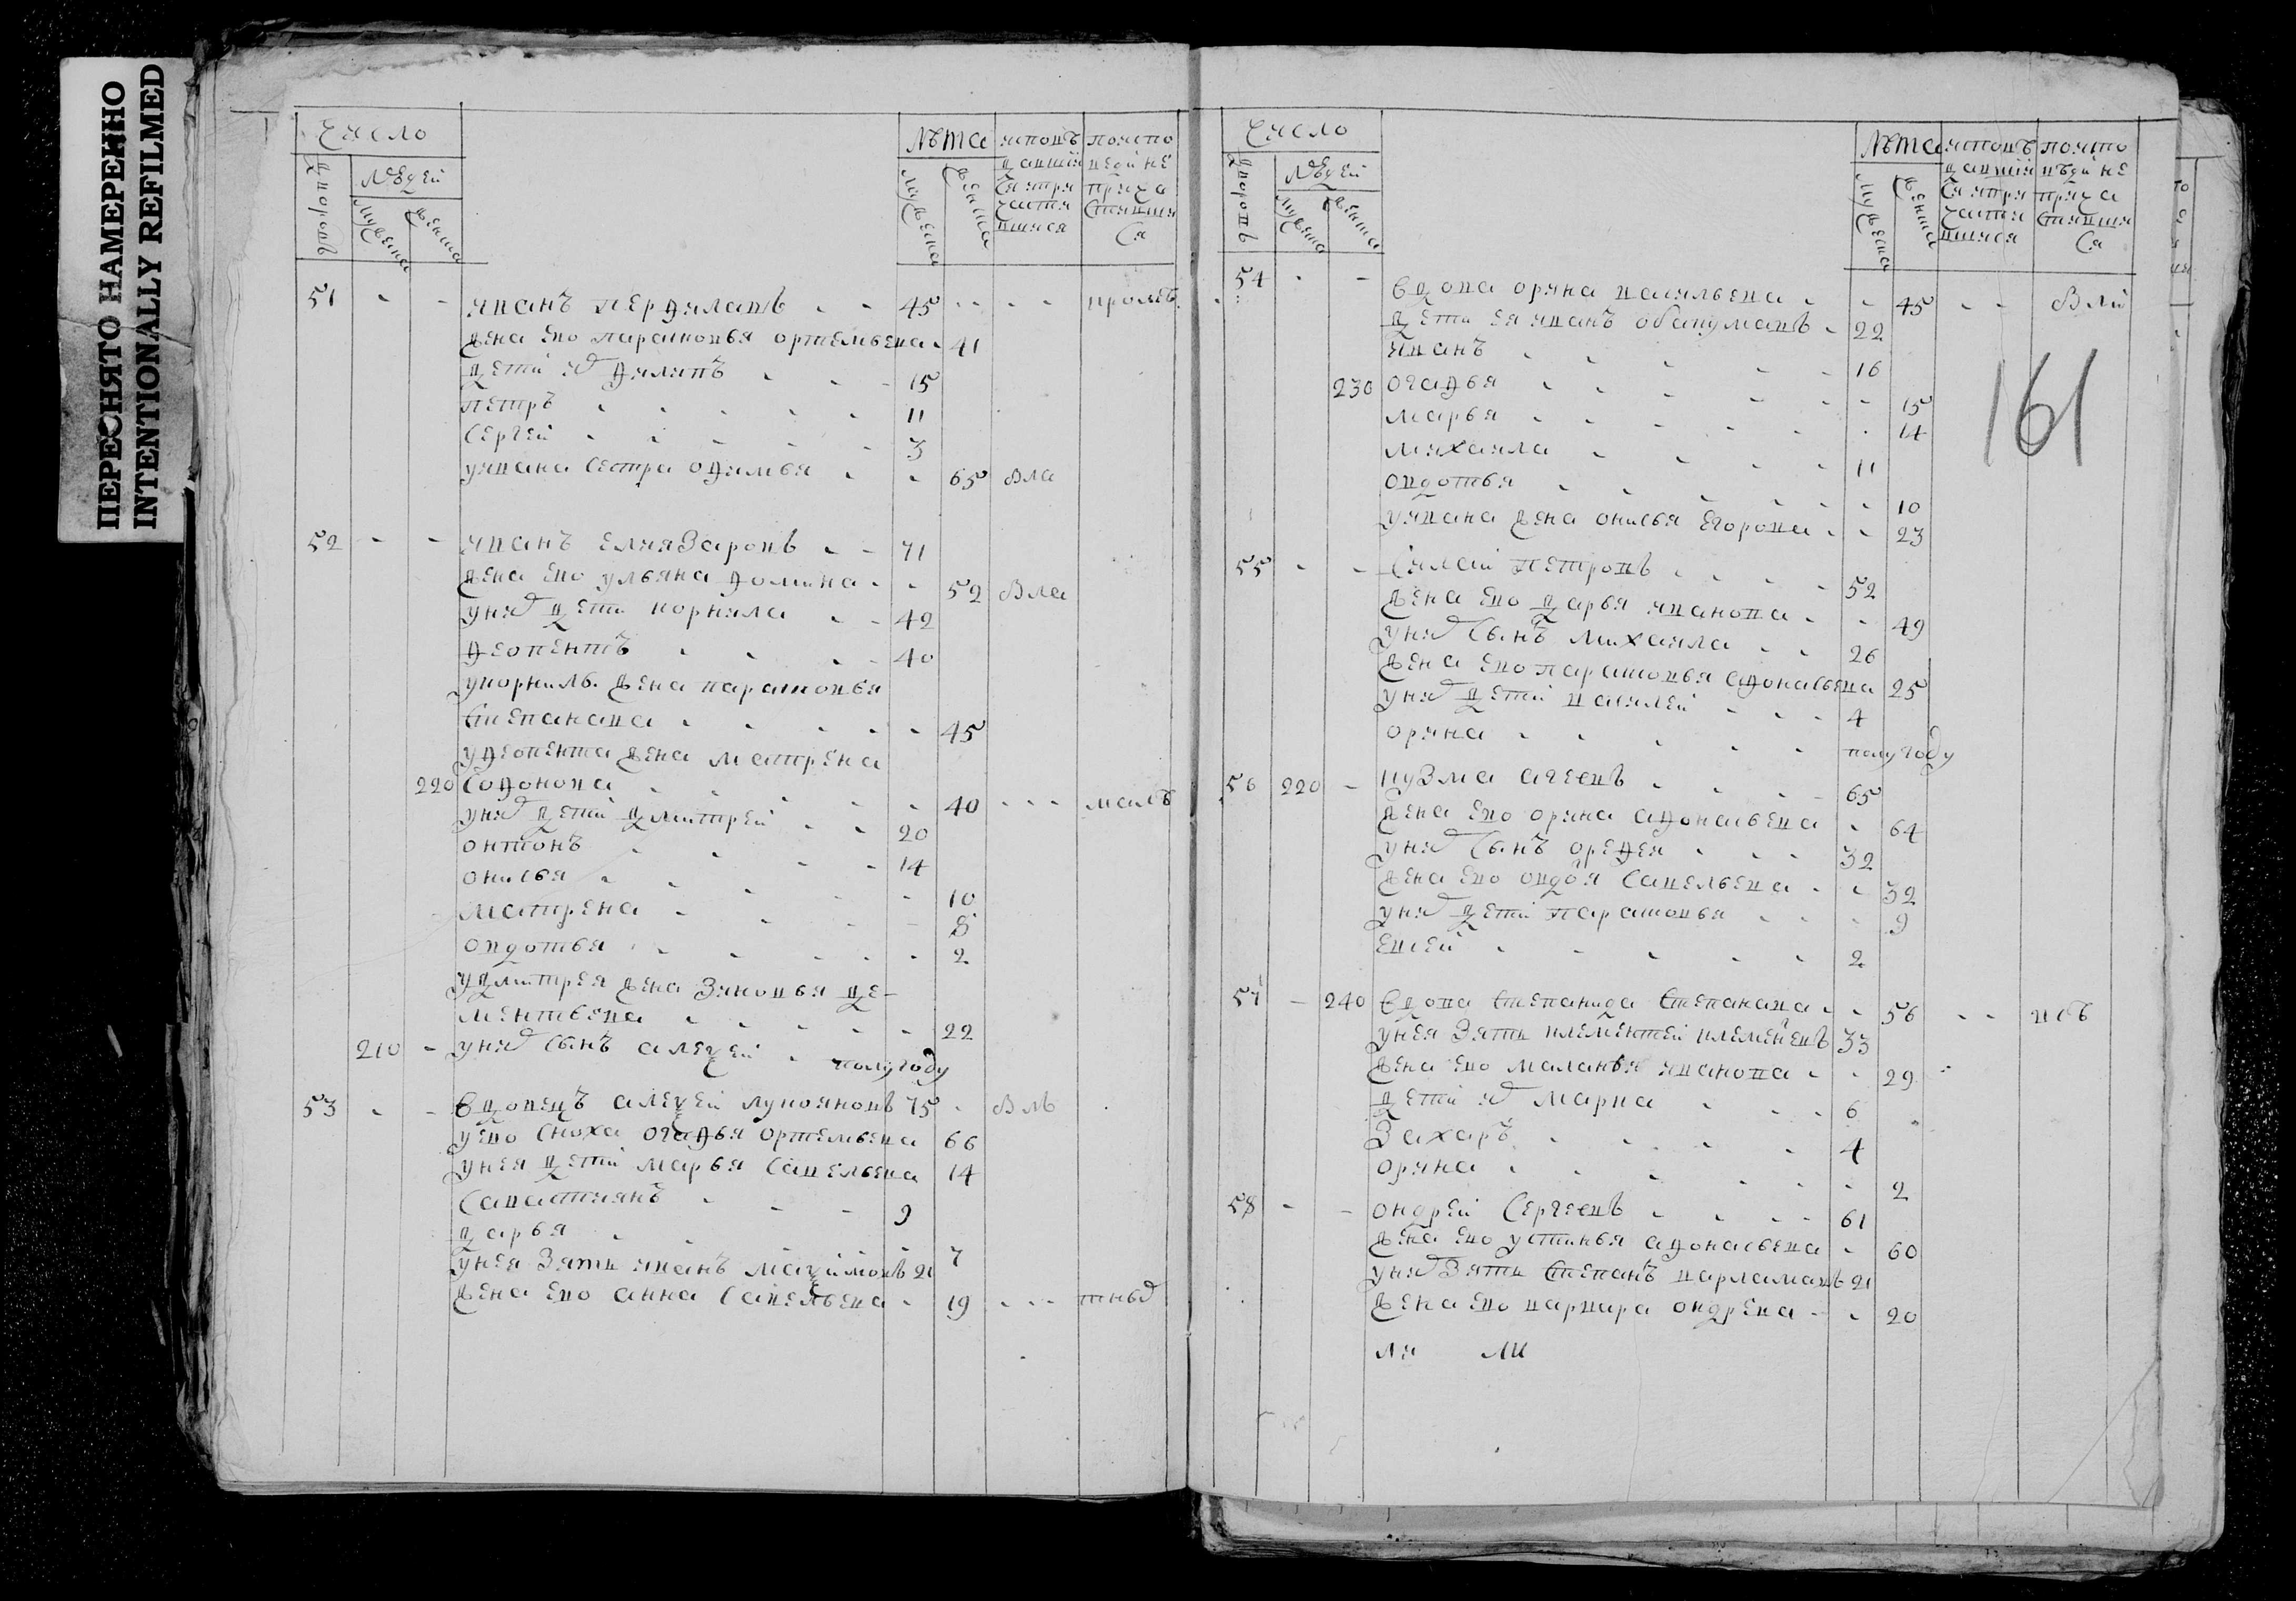 ПЕРЕСНЯТО НАМЕРЕННО
INTENTIONALLY REFILMED
Число
Дворовъ
Людей
Мужеска
Женска
Лѣта
Мужеска
Женска
исповѣ
давшия
ся и при
части
вшияся
поиспо
веди не
прича
стивши
ся
51 - - иванъ перфиловъ - - 45 - - -
жена ево парасковья ортемьевна - 41
дети их филипъ - - - 15
петръ - - - - - 11
Сергей - - - - - 3
уивана Сестра офимья - - 65 Вла
52 - - иванъ елиазаровъ - - 71
жена ево ульяна фомина - - 52 Вла
уних дети корнила - - 42
феопентъ - - - 40
укорнилы жена парасковья
Степанава - - - - - 45
уфеопента жена матрена
220 Софонова - - - - - 40 - - -
уних дети дмитрей - - 20
онтонъ - - - - 14
онисья - - - - - 10
матрена - - - - 8
овдотья - - - - - 2
удмитрея жена Зиновья де-
ментьевна - - - - - 22
210 - уних Сынъ алексей - полугоду
53 - - Вдовецъ алексей лукояновъ 75 - Вль
уево Сноха огафья ортемьевна 66
унея дети марья Савельевна 14
Савастиянъ - - - 9
дарья - - - - - 7
унея Зять иванъ максимовъ 21
жена ево анна Савельевна - 19 - - -
Число
Дворовъ
Людей
Мужеска
Женска
Лѣта
Мужеска
Женска
исповѣ
давшия
ся и при
части
вшияся
поиспо
вѣди не
прича
стивши
ся
161
54 - - Вдова орина васильевна - - 45 - - Вли
дети ея иванъ обакумавъ - 22
иванъ - - - - - 16
230 огафья - - - - - - 15
марья - - - - - - 14
михаила - - - - 11
овдотья - - - - - 10
уивана жена онисья Егорова - - 23
55 - - Силай петровъ - - - - 52
жена ево дарья иванова - - 49
уних Сынъ михаила - - 26
жена ево парасковья афонасьевна 25
уних дети василей - - - 4
орина - - - - - полугоду
56 220 - кузма агеевъ - - - - 65
жена ево орина афонасьевна - 64
уних Сынъ орефея - - - 32
жена ево овдоя Савельевна - - 32
уних дети парасковья - - - 9
евсей - - - - - 2
57 - 240 Вдова Степанида Степанава - - 56 - -
унея Зять клементей клеменевъ 33
жена ево маланья иванова - - 29
дети их марка - - - 6
Захаръ - - - - 4
орина - - - - - - 2
58 - - ондрей Сергеевъ - - - - 61
жена ево устинья афонасьевна - 60
уних Зять Степанъ варламавъ 21
жена ево варвара ондрева - - 20